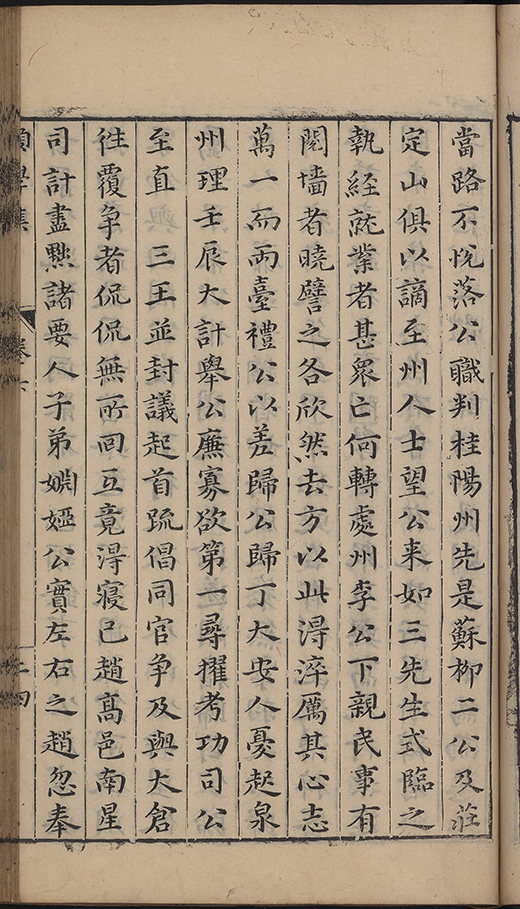 當路不悅落公職判桂陽州先是蘇柳二公及莊
定山俱以謫至州人士望公来如三先生式臨之
執經就業者甚衆亡何轉處州李公下親民事有
鬩墻者曉譬之各欣然去方以此淂淬厲其心志
萬一而兩臺禮公以差歸公歸丁大安人憂起泉
州理壬辰大計舉公廉寡欲第一尋擢考功司公
至直 三王並封議起首疏倡同官争及與大倉
徃覆争者侃侃無所回互竟淂寢已趙高邑南星
司計盡黜諸要人子弟婣婭公實左右之趙忽奉
學集 卷六 二十四